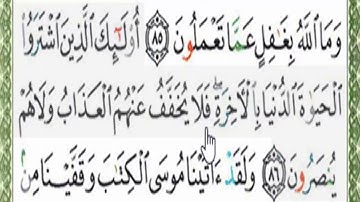 وَمَا ٱللَّهُ بِغَٰفِلٍ عَمَّا تَعْمَلُونَ ٨٥ أُو۟لَٰٓئِكَ ٱلَّذِينَ ٱشْتَرَوُا۟
ٱلْحَيَوٰةَ ٱلدُّنْيَا بِٱلْأَخِرَةِۖ فَلَا يُخَفَّفُ عَنْهُمُ ٱلْعَذَابُ وَلَا هُمْ
يُنصَرُونَ ٨٦ وَلَقَدْ ءَاتَيْنَا مُوسَى ٱلْكِتَٰبَ وَقَفَّيْنَا مِنۢ